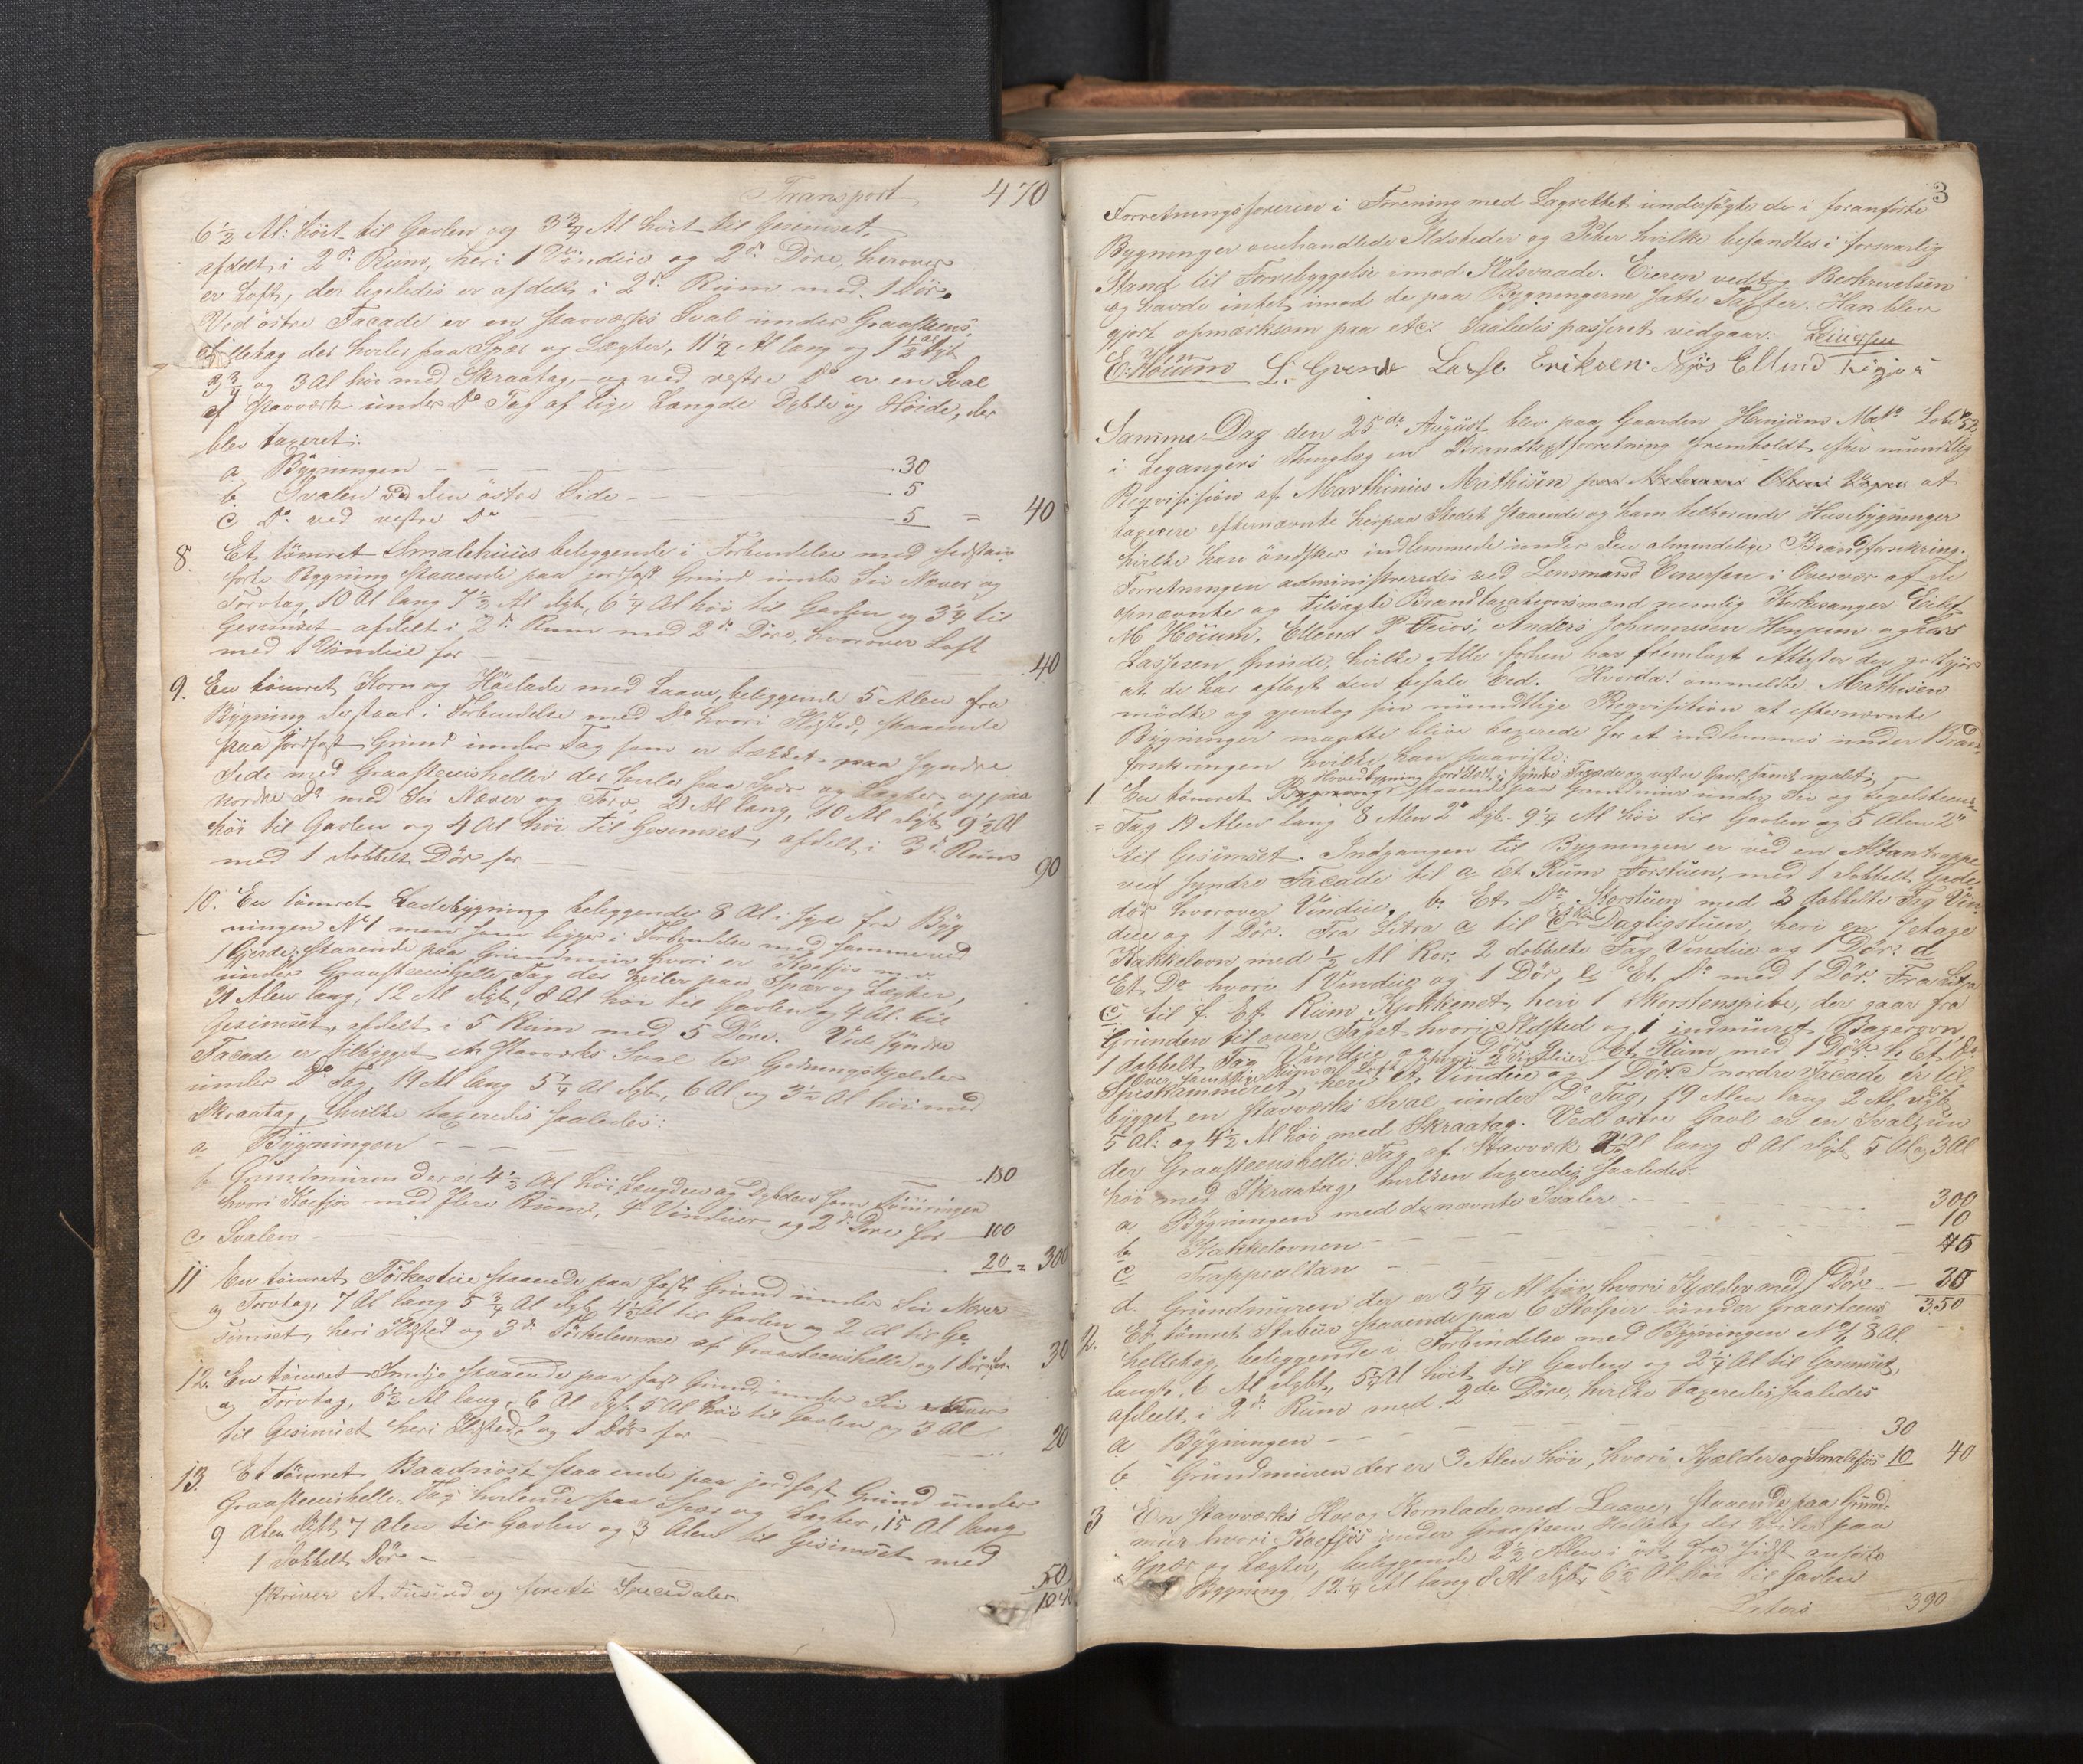 Transport 470
6 1/2 Al: höit til Gavlen og 3 3/4 Al höit til Gesimset,
afdelt i 2de Rum, heri 1 Vindue og 2de Döre, herover
er Loft, der ligeledes er afdelt i 2de Rum med 1 Dör.
Ved östre Facade er en stavværks Sval under Graasteens
helletag der hviler paa Spær og Lægter, 11 1/2 Al lang og 1 1/2 Al dyb
3 3/4 og 3 Al höi med Skraatag, og ved vestre Do er en Sval
af Stavværk under Do Tag af lige Længde Dybde og Höide, der
blev taxeret:
a Bygningen 30
b. Svalen ved den östre Side 5
c Do ved vestre Do 5 = 40
8. Et tömret Smalehuus beliggende i Forbindelse med sidstan-
förte Bygning staaende paa jordfast Grund under Sin Næver og
Torvtag, 10 Al lang 7 1/2 Al dyb, 6 1/4 Al höi til Gavlen og 3 1/4 til
Gesimset afdelt i 2de Rum med 2de Döre, hvorover Loft
med 1 Vindue for 40
9. En tömret Korn og Höelade med Laave, beliggende 5 Alen fra
Bygning der staar i Forbindelse med Do hvori Ildsted, staaende
paa jordfast Grund under Tag som er tækket paa syndre
Side med Graasteenheller der hviler paa Spær og Lægter, og paa
nordre Do med Sin Næver og Torv, 20 Al lang, 10 Al dyb, 9 1/2 Al
höi til Gavlen og 4 Al höi til Gesimset, afdelt i 3de Rum
med 1 dobbelt Dör for 90
10. En tömret Ladebygning beliggende 8 Al i Syd fra Byg
ningen No 1 men som ligger i Forbindelse med samme ved
1 Gjerde, staaende paa Grundmuur hvori er Koefjös m.v.
under Graasteenshelle Tag der hviler paa Spær og Lægter,
31 Alen lang, 12 Al dyb, 8 Al höi til Gavlen og 4 Al. til
Gesimset, afdelt i 5 Rum med 5 Döre. Ved syndre
Facade er tilbygget et Stavværks Sval til Gjödningskjelder
under Do Tag, 19 Al lang 5 1/4 Al dyb, 6 Al og 3 1/2 Al höi med
Skraatag, hvilke taxeredes saaledes:
a Bygningen 180
b Grundmuren der er 4 1/2 Al höi Længden og Dybden som Tömringen
hvori Koefjös med flere Rum, 4 Vinduer og 2de Döre for 100
c Svalen 20 = 300
11 En tömret Törkestue staaende paa fast Grund under Sin Næver
og Torvtag, 7 Al lang 5 3/4 Al dyb, 4 1/2 Al til Gavlen og 2 Al til Ge-
simset, heri Ildsted og 3de Törkelemme af Graasteenshelle, og 1 Dör for 30
12. En tömret Smidje staaende paa fast Grund under Sin Næver
og Torvtag, 6 1/2 Al lang, 6 Al dyb, 5 Al höi til Gavlen og 3 Al
til Gesimset heri Ildsted og 1 Dör for 20
13. Et tömret Baadnöst staaende paa jordfast Grund under
Graasteenshelle Tag hvilende paa Spær og Lægter, 15 Al lang
9 Alen dybt, 7 Alen til Gavlen og 3 Alen til Gesimset med
1 dobbelt Dör 50
skriver Et tusind og fireti Speciedaler 1040
3
Forretningsföreren i Forening med Lagrettet undersögte de i foranförte
Bygninger omhandlede Ildsteder og Piber hvilke befandtes i forsvarlig
Stand til Forebyggelse imod Ildsvaade. Eieren vedtog Beskrivelsen
og havde intet imod de paa Bygningerne satte Taxter. Han blev
gjort opmærksom paa etc: Saaledes passeret vidgaar: Einersen
E. Höium L. Grinde Lasse Eriksen Njös Ellend
Samme Dag den 25de August blev paa Gaarden Henjum Mat No Lob 52
i Leganger Thinglag en Brandtaxtforretning fremholdt efter mundtlig
Reqvisision af Marthinus Mathisen at
taxere efternævnte herpaa Stedet staaende og ham tilhörende Husebygninger
hvilke han ÿnsker indlemmede under den almindelige Brandforsikring.
Forretningen administreredes ved Lensmand Einersen i Overvær af de
opnævnte og tilsagte Brandtaxationsmænd nemlig Kirkesanger Eilef
M Höium, Ellend P Trios, Anders Johannesen Henjum og Lars
Lassesen Grinde, hvilke Alle forhen har fremlagt Attester der godtgjör
at de har aflagt den befale Eed. Hvorda! ommeldte Mathisen
mödte og gjentog sin mundtlige Reqvisition at efternævnte
Bygninger maatte blive taxerede for at indlemmes under Brand-
forsikringen hvilke han paaviste:
Hovedbygning bordklædt i syndre Facade og vestre Gavl samt malet;
1. En tömret Bygning staaende paa Grundmuur under Sin og tegelsteens-
= Tag 19 Alen lang 8 Alen 2" dyb. 9 1/4 Al höi til Gavlen og 5 Alen 2"
til Gesimset. Indgangen til Bygningen er ved en Altantrappe
ved syndre Facade til a Et Rum Forstuen, med 1 dobbelt Gade
dör hvorover Vindue, b. Et Do Storstuen med 3 dobbelte Fag Vin-
due og 1 Dör. Fra Litra a til C Dagligstuen, heri en 2 etage
Kakkelovn med 1/2 Al Rör, 2 dobbelte Fag Vindue og 1 Dör: d
Et Do hvori 1 Vindue og 1 Dör, e Et Do med 1 Dör. Fra Litra
C til f. Et Rum Kjökkenet, heri 1 Skorstenspibe, der gaar fra
Grunden til over Taget hvori Ildsted og 1 indmuret Bagerovn
1 dobbelt Fag Vindue og 1 Dör g Et Rum med 1 Dör. h Et Do
Over samtlige Rum er Loft
Spisekammeret, heri et Vindue og 1 Dör. I nordre Facade er til
bygget en stavværks Sval under Do Tag, 19 Alen lang 2 Al dyb
5 Al: og 4 1/2 Al höi med Skraatag. Ved östre Gavl er en Sval, un
der Graasteenshelle Tag af Stavværk Al lang 8 Al dyb 5 Al og 3 Al
höi med Skraatag, hvilken taxeredes saaledes:
a Bygningen med dennævnte Svaler 300
b Kakkelovnen 10
c Trappealtan
d. Grundmuren der er 3 1/4 Al höi hvori Kjælder med 1 Dör
350
2. Et tömret Stabur staaende paa 6 Stolper under Graasteens
helletag, beliggende i Forbindelse med Bygningen No 1, 8 Al
langt, 6 Al dybt, 5 3/4 Al höit til Gavlen og 2 1/4 Al til Gesimset,
afdeelt i 2de Rum med 2de Döre, hvilke taxeredes saaledes
a Bygningen 30
b Grundmuren der er 3 Alen höi, hvori Kjælder og Smalefjös 10 40
3 En Stavværks Hoe og Kornlade med Laave, staaende paa Grund-
muur hvori Koefjös under Graasteen Helletag der hviler paa
Spær og Lægter, beliggende 2 1/2 Alen i öst fra sidst anförte
Bygning, 12 1/4 Al lang 8 Al dyb 6 1/2 Al höi til Gavlen
Lateris 390